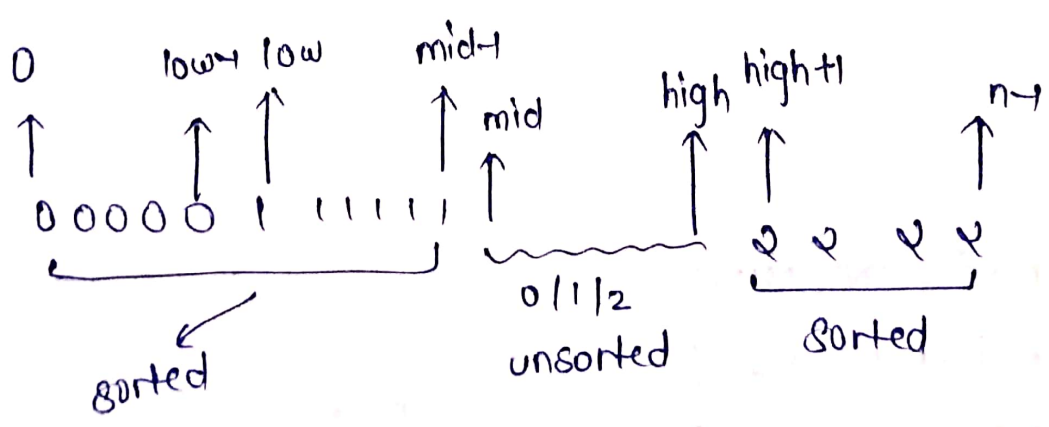 0 low-1 low mid-1 mid high high+1 n-1
0 0 0 0 0 1 1 1 1 1 1 2 2 2 2
0/1/2
sorted unsorted sorted